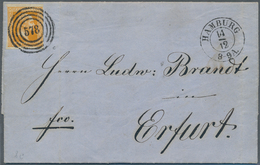 578
HAMBURG
14
12
8-9
Herrn Ludw: Brandt
in
fro.
Erfurt.